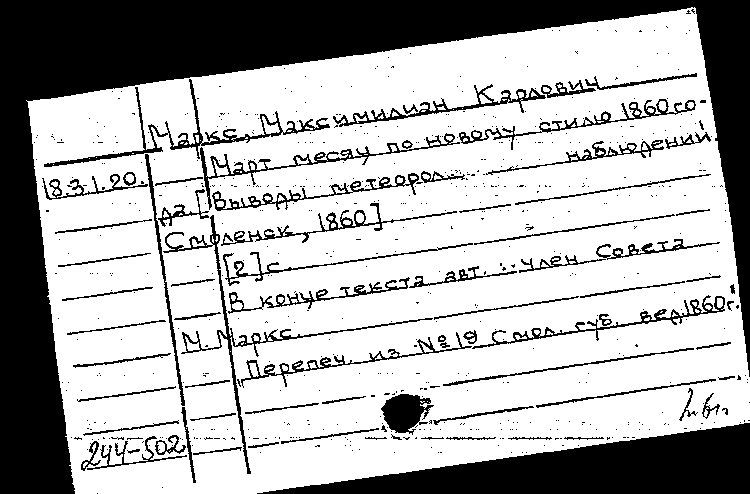 Маркс, Максимилиан Карлович
18.31.20.
Март месяц по новому стилю 1860 го-
да. [Выводы метеорол. наблюдений.
Смоленск, 1860].
[2] с.
В конце текста авт.: Член Совета
М. Маркс.
"Перепеч. из №19 Смол. губ. вед. 1860г."
244-502